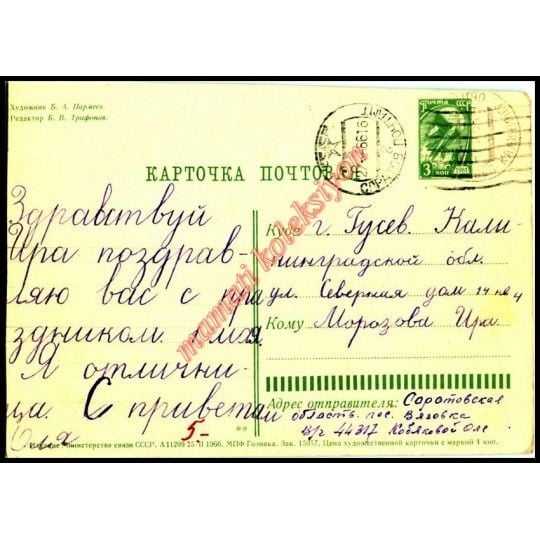 Художник Б. А. Пармеев.
Редактор Б. В. Трифонов.
ПОЧТА СССР
3
КОП
КАРТОЧКА ПОЧТОВАЯ
Здравствуй
Ира поздрав-
ляю вас с пра
здником 1 мая.
Я отлични-
ца. С приветом
Оля
5-
Куда г. Гусев. Кали-
нинградской обл.
ул. Северная дом 14 кв 4
Кому Морозова Ира.
Адрес отправителя: Саротовская
область. пос. Вязовка
в/г 44317 Кобяковой Оле
Издание Министерства связи СССР. А 11209 25-II 1966. МПФ Гознака. Зак. 15057. Цена художественной карточки с маркой 4 коп.
mamati koleksiyon